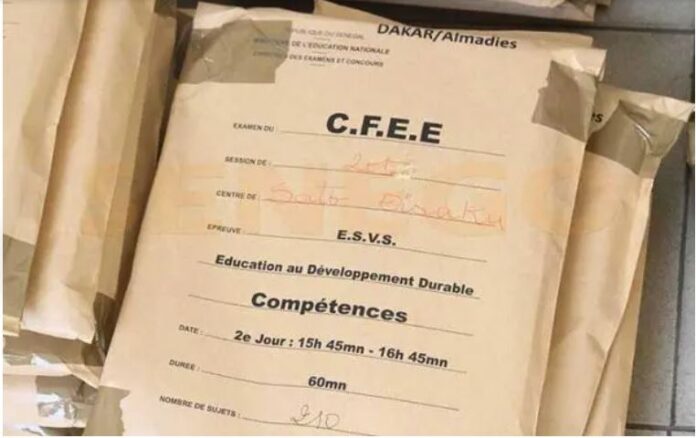 REPUBLIQUE DU SENEGAL
DAKAR/Almadies
MINISTERE DE L'EDUCATION NATIONALE
DIRECTION DES EXAMENS ET CONCOURS
EXAMEN DU : C.F.E.E
SESSION DE :
CENTRE DE : Sato Disaku
EPREUVE : E.S.V.S.
Education au Développement Durable
Compétences
DATE : 2e Jour : 15h 45mn - 16h 45mn
DUREE : 60mn
NOMBRE DE SUJETS : 210
SENEGO